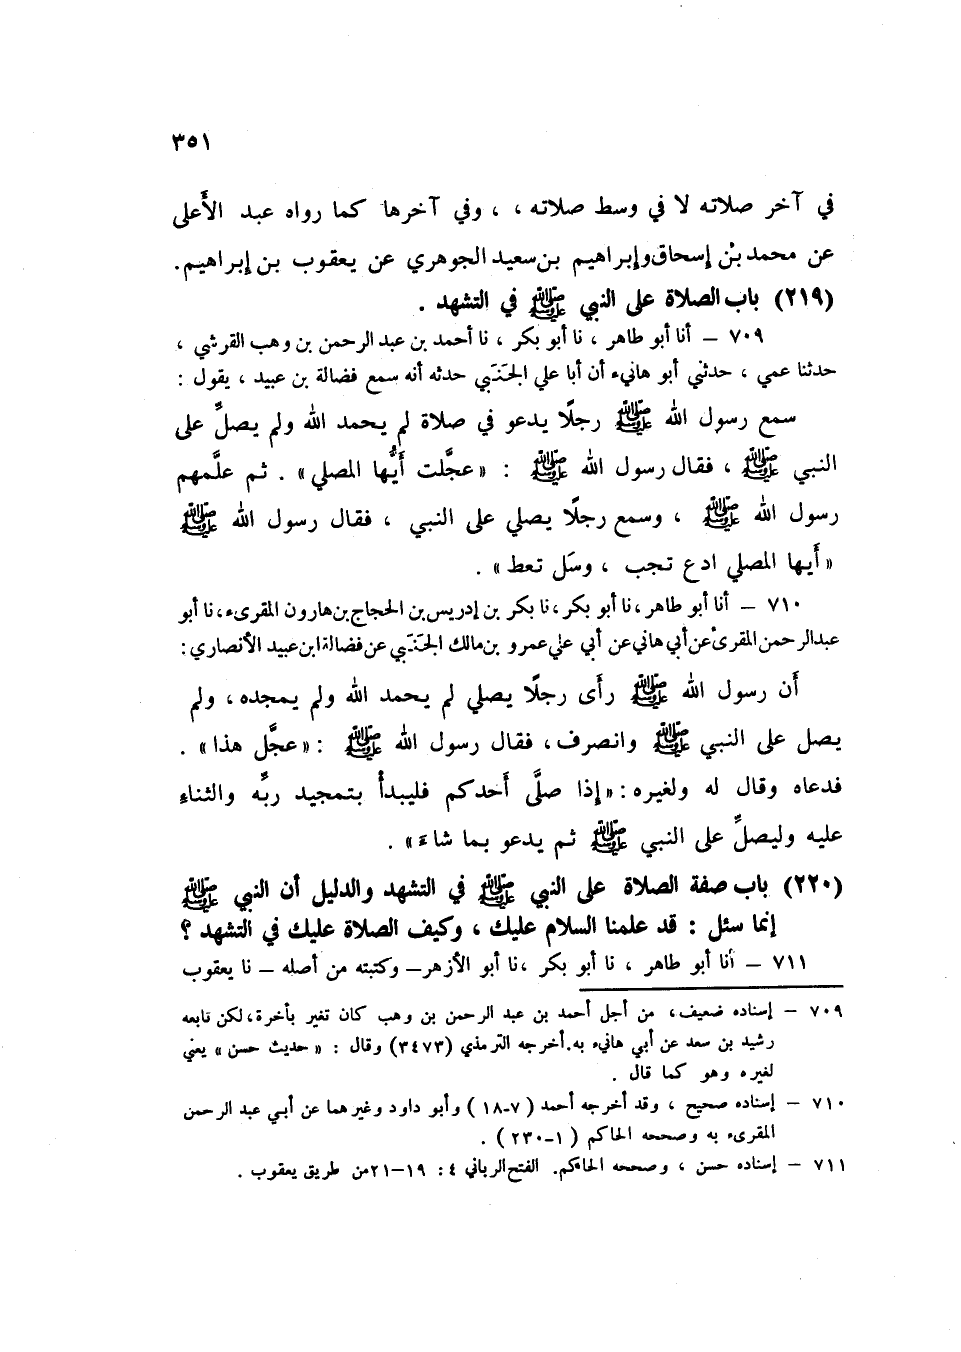 ٣٥١
في آخر صلاته لا في وسط صلاته ، ، وفي آخرها كما رواه عبد الأَعلى
عن محمد بنْ إسحاق وإبراهيم بن سعيد الجوهري عن يعقوب بن إبراهيم .
(٢١٩) باب الصلاة على النبي ﷺ في التشهد .
٧٠٩ – أنا أبو طاهر ، نا أبو بكر ، نا أحمد بن عبد الرحمن بن وهب القرشي ،
حدثنا عمي ، حدثني أبو هانيء أن أبا علي الجَنَبي حدثه أنه سمع فضالة بن عبيد ، يقول :
سمع رسول الله ﷺ رجلًا يدعو في صلاة لم يحمد الله ولم يصلِّ على
النبي ﷺ ، فقال رسول الله ﷺ : «عجَّلت أَيُّها المصلي» . ثم علَّمهم
رسول الله ﷺ ، وسمع رجلًا يصلي على النبي ، فقال رسول الله ﷺ
«أَيها المصلي ادع تجب ، وسَل تعط» .
٧١٠ – أنا أبو طاهر ، نا أبو بكر ، نا بكر بن إدريس بن الحجاج بن هارون المقرىء ، نا أبو
عبد الرحمن المقرىء عن أبي هاني عن أبي علي عمرو بن مالك الجَنَبي عن فضالة ابن عبيد الأنصاري :
أَن رسول الله ﷺ رأَى رجلًا يصلي لم يحمد الله ولم يمجده ، ولم
يصل على النبي ﷺ وانصرف ، فقال رسول الله ﷺ : «عجَّل هذا» .
فدعاه وقال له ولغيره : «إذا صلَّى أَحدكم فليبدأْ بتمجيد ربِّه والثناءِ
عليه وليصلِّ على النبي ﷺ ثم يدعو بما شاءَ» .
(٢٢٠) باب صفة الصلاة على النبي ﷺ في التشهد والدليل أن النبي ﷺ
إنما سئل : قد علمنا السلام عليك ، وكيف الصلاة عليك في التشهد ؟
٧١١ – أنا أبو طاهر ، نا أبو بكر ، نا أبو الأزهر – وكتبته من أصله – نا يعقوب
٧٠٩ – إسناده ضعيف ، من أجل أحمد بن عبد الرحمن بن وهب كان تغير بأخرة ، لكن تابعه
رشيد بن سعد عن أبي هانيء به . أخرجه الترمذي (٣٤٧٣) وقال : «حديث حسن» يعني
لغيره وهو كما قال .
٧١٠ – إسناده صحيح ، وقد أخرجه أحمد (٧-١٨) وأبو داود وغيرهما عن أبي عبد الرحمن
المقرىء به وصححه الحاكم (١-٢٣٠) .
٧١١ – إسناده حسن ، وصححه الحاكم . الفتح الرباني ٤ : ١٩–٢١ من طريق يعقوب .